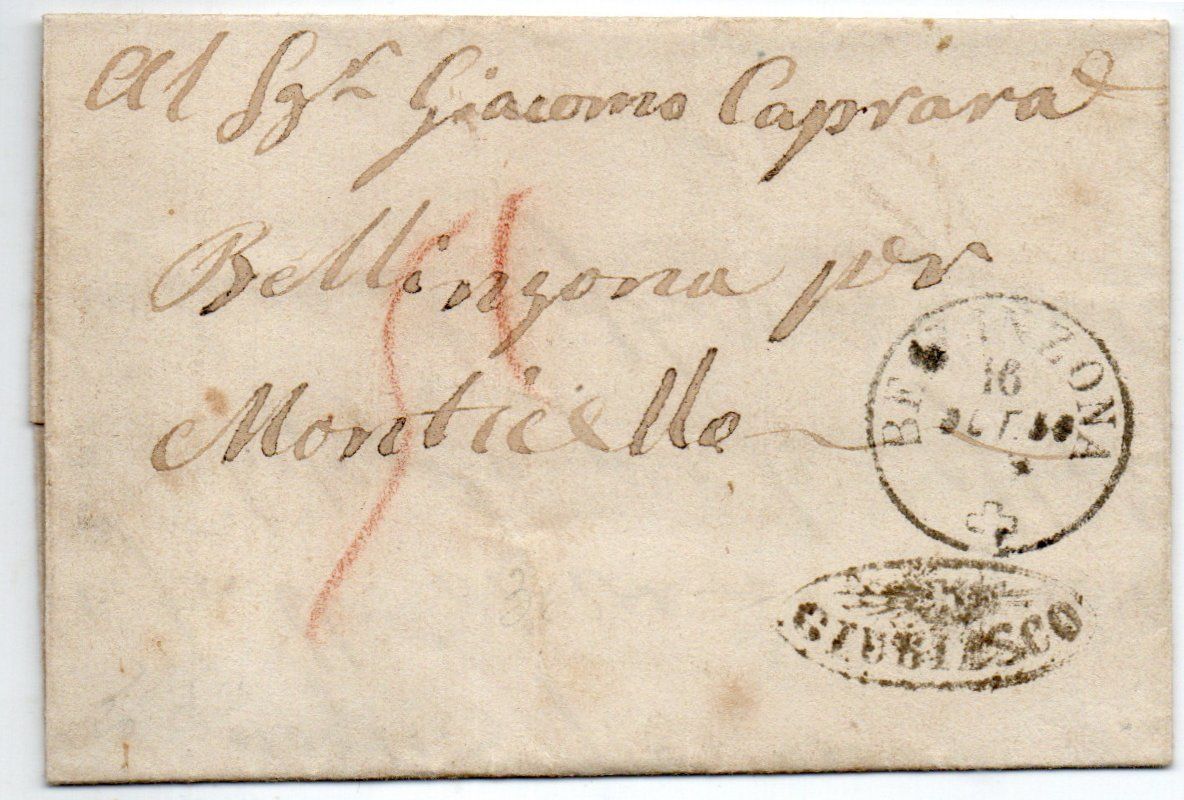 Al Sgr Giacomo Caprara
Bellinzona per
Monticello
BELLINZONA
16
OCT
GIUBIASCO